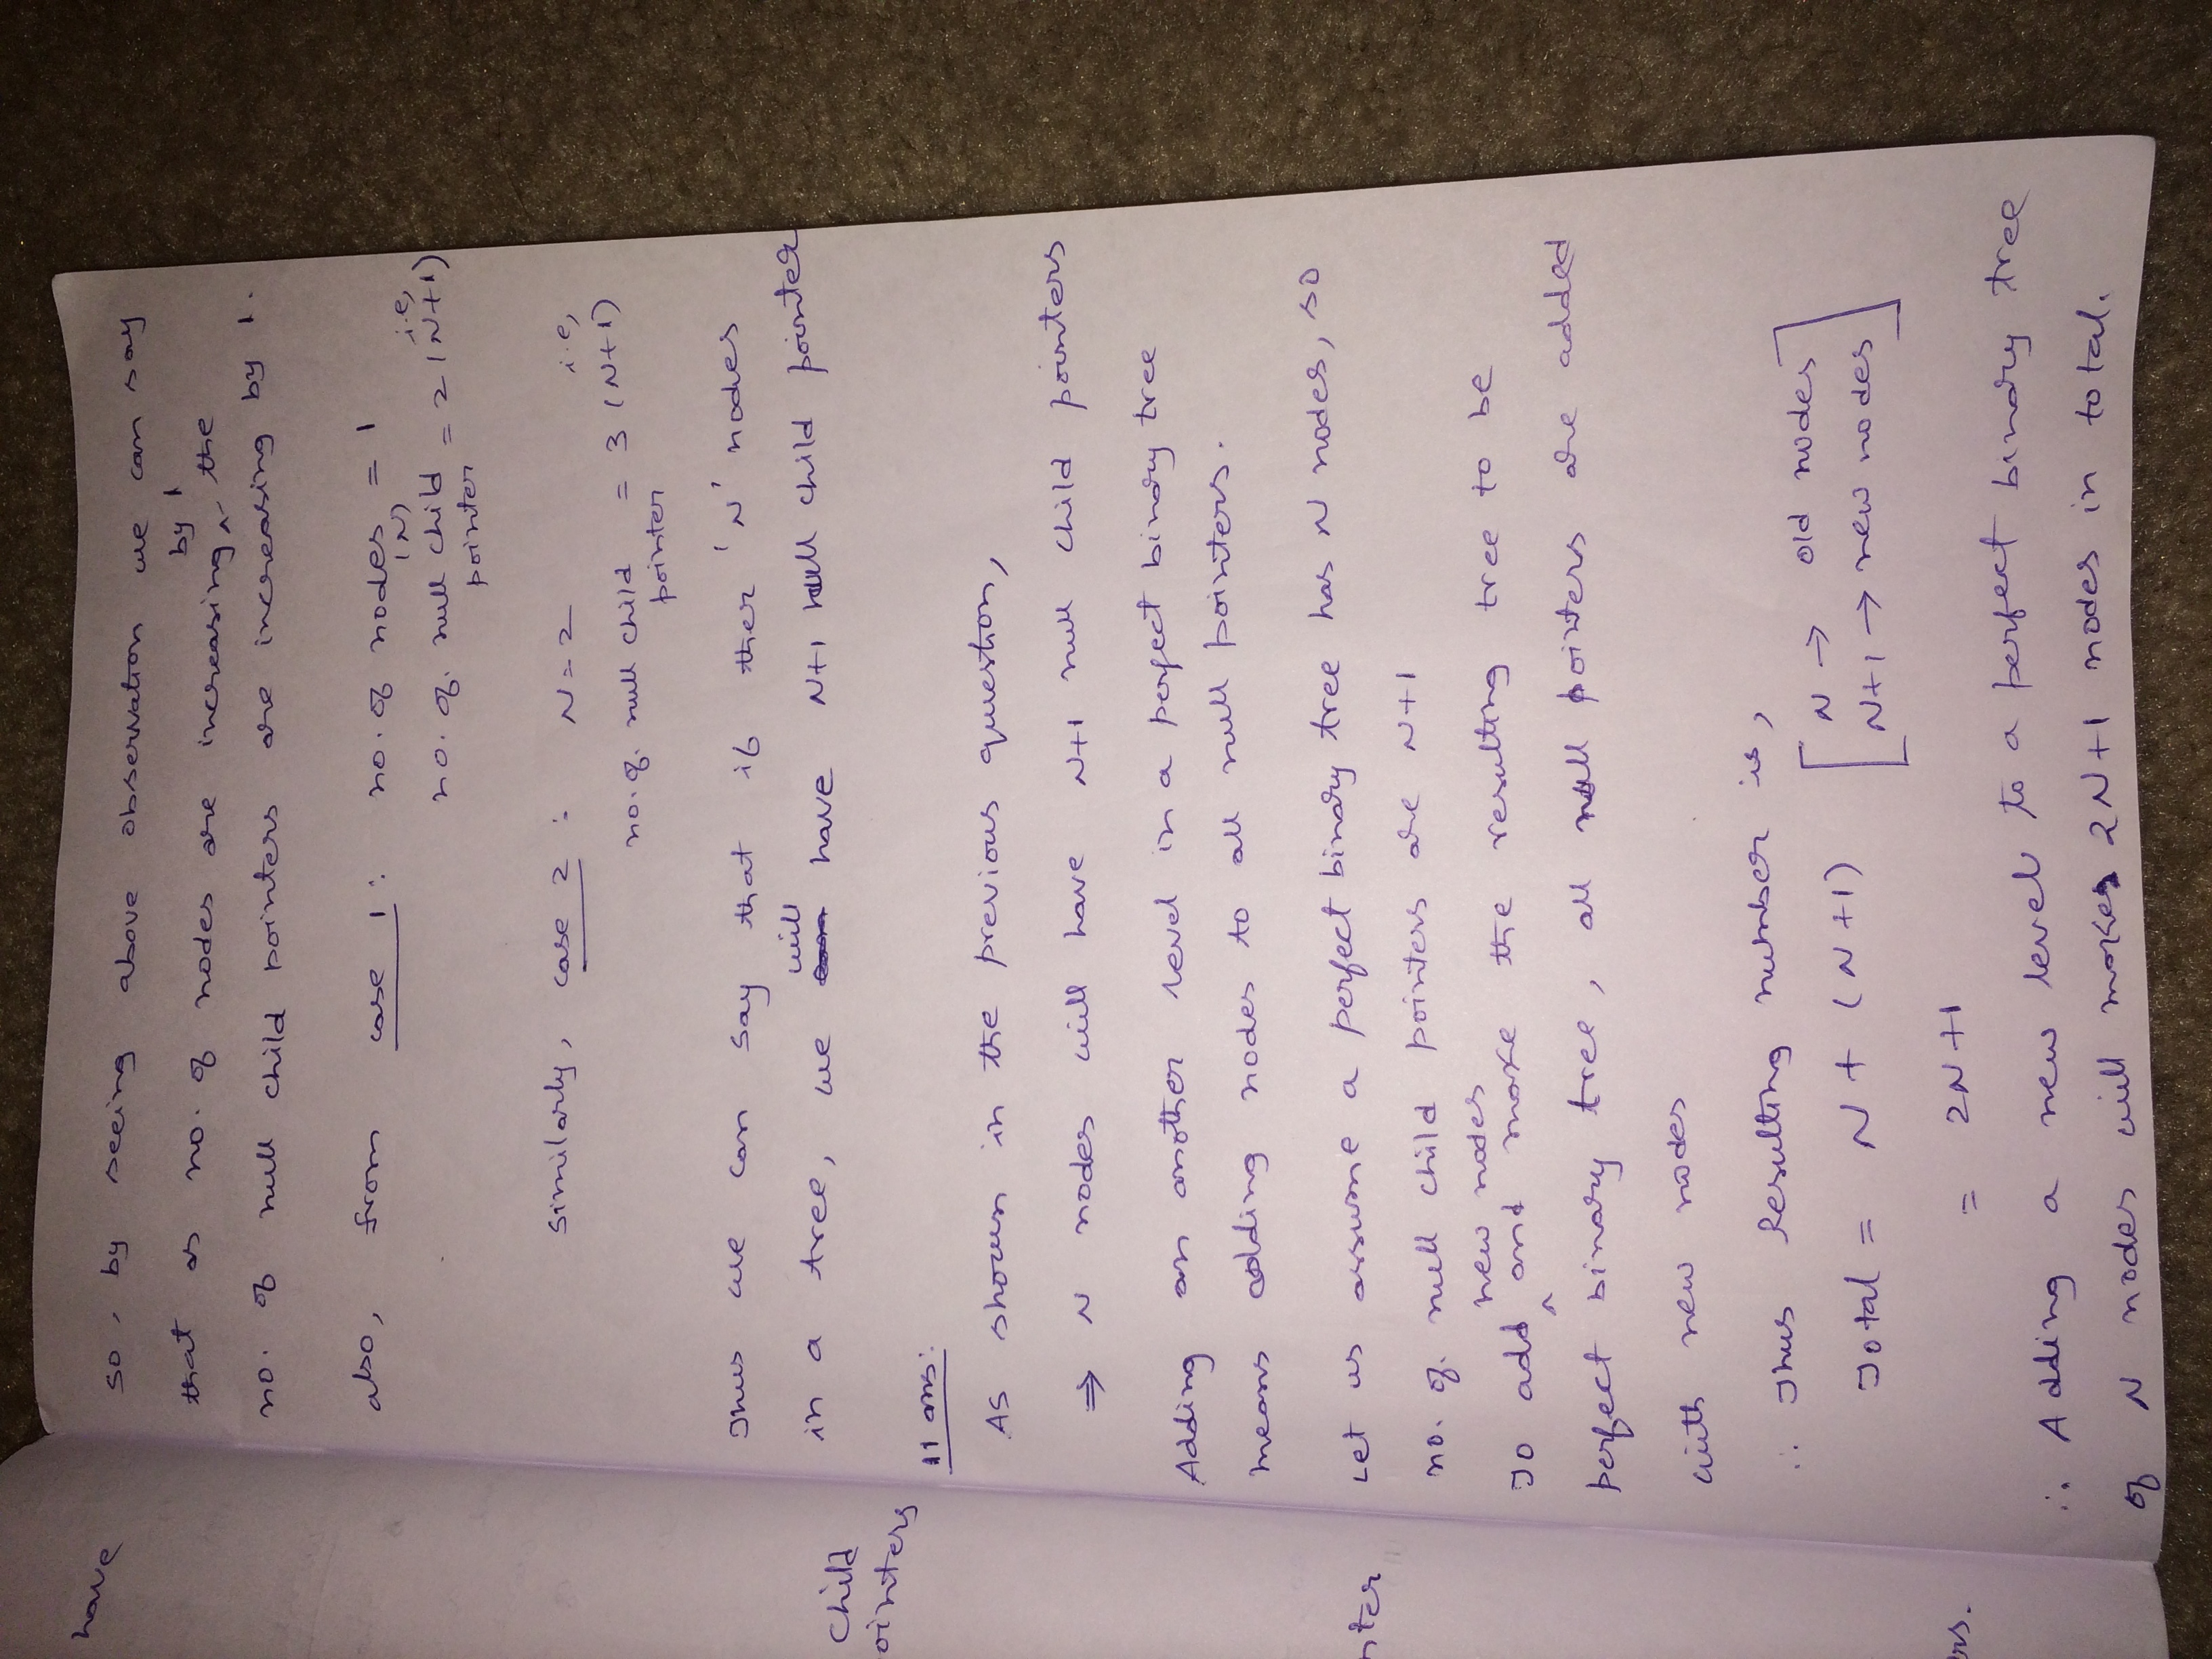 have
child
ointers
nter
ers.
so, by seeing above observation we can say
that as no. of nodes are increasing by 1 the
no. of null child pointers are increasing by 1.
also, from case 1 : no. of nodes = 1
(N)
no. of. null child pointer = 2 i.e, (N+1)
Similarly, case 2 : N = 2
no. of. null child pointer = 3 i.e, (N+1)
Thus we can say that if ther 'N' nodes
in a tree, we will have N+1 null child pointer
11 ans:
As shown in the previous question,
⇒ N nodes will have N+1 null child pointers
Adding an another level in a perfect binary tree
means adding nodes to all null pointers.
Let us assume a perfect binary tree has N nodes, so
no. of. null child pointers are N+1
To add new nodes and make the resulting tree to be
perfect binary tree, all null pointers are added
with new nodes
∴ Thus Resulting number is,
Total = N + (N+1) [N → old nodes
N+1 → new nodes]
= 2N+1
∴ Adding a new level to a perfect binary tree
of N nodes will makes 2N+1 nodes in total.